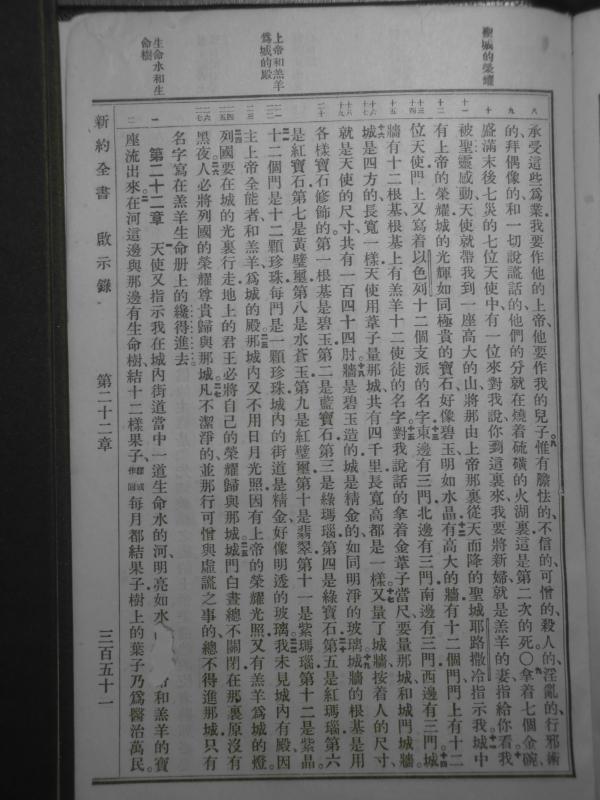 聖城的榮耀
上帝和羔羊爲城的殿
生命水和生命樹
承受這些爲業我要作他的上帝他要作我的兒子惟有膽怯的不信的可憎的殺人的淫亂的行邪術
的拜偶像的和一切說謊話的他們的分就在燒着硫磺的火湖裏這是第二次的死〇拿着七個金碗
盛滿末後七災的七位天使中有一位來對我說你到這裏來我要將新婦就是羔羊的妻指給你看我
被聖靈感動天使就帶我到一座高大的山將那由上帝那裏從天而降的聖城耶路撒冷指示我城中
有上帝的榮耀城的光輝如同極貴的寶石好像碧玉明如水晶有高大的牆有十二個門門上有十二
位天使門上又寫着以色列十二個支派的名字東邊有三門北邊有三門南邊有三門西邊有三門城
牆有十二根基根基上有羔羊十二使徒的名字對我說話的拿着金葦子當尺要量那城和城門城牆
城是四方的長寬一樣天使用葦子量那城共有四千里長寬高都是一樣又量了城牆按着人的尺寸
就是天使的尺寸共有一百四十四肘牆是碧玉造的城是精金的如同明淨的玻璃城牆的根基是用
各樣寶石修飾的第一根基是碧玉第二是藍寶石第三是綠瑪瑙第四是綠寶石第五是紅瑪瑙第六
是紅寶石第七是黃璧璽第八是水蒼玉第九是紅璧璽第十是翡翠第十一是紫瑪瑙第十二是紫晶
十二個門是十二顆珍珠每門是一顆珍珠城內的街道是精金好像明透的玻璃我未見城內有殿因
主上帝全能者和羔羊爲城的殿那城內又不用日月光照因有上帝的榮耀光照又有羔羊爲城的燈
列國要在城的光裏行走地上的君王必將自己的榮耀歸與那城城門白晝總不關閉在那裏原沒有
黑夜人必將列國的榮耀尊貴歸與那城凡不潔淨的並那行可憎與虛謊之事的總不得進那城只有
名字寫在羔羊生命册上的纔得進去
第二十二章 天使又指示我在城內街道當中一道生命水的河明亮如水 和羔羊的寶
座流出來在河這邊與那邊有生命樹結十二樣果子 每月都結果子樹上的葉子乃爲醫治萬民
新約全書 啟示錄 第二十二章 三百五十一